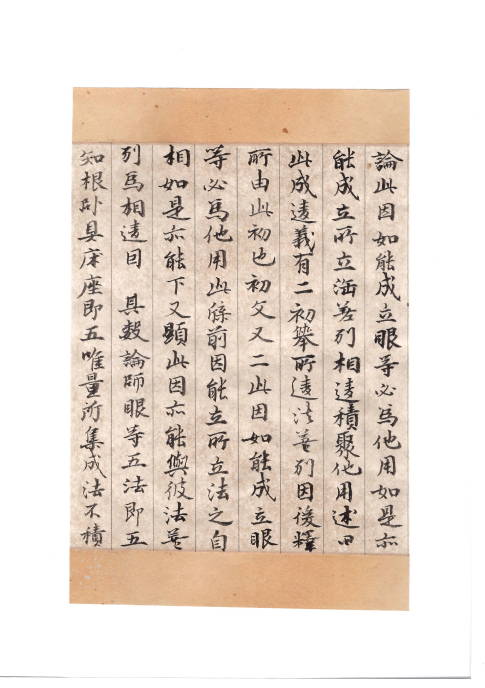 論此因如能成立眼等必爲他用如是亦
能成立所立法差別相違積聚他用述曰
此成違義有二初舉所違法差別因後釋
所由此初也初文又二此因如能成立眼
等必爲他用此牒前因能立所立法之自
相如是亦能下又顯此因亦能與彼法差
別爲相違因 具數論師眼等五法即五
知根卧具床座即五唯量所集成法不積